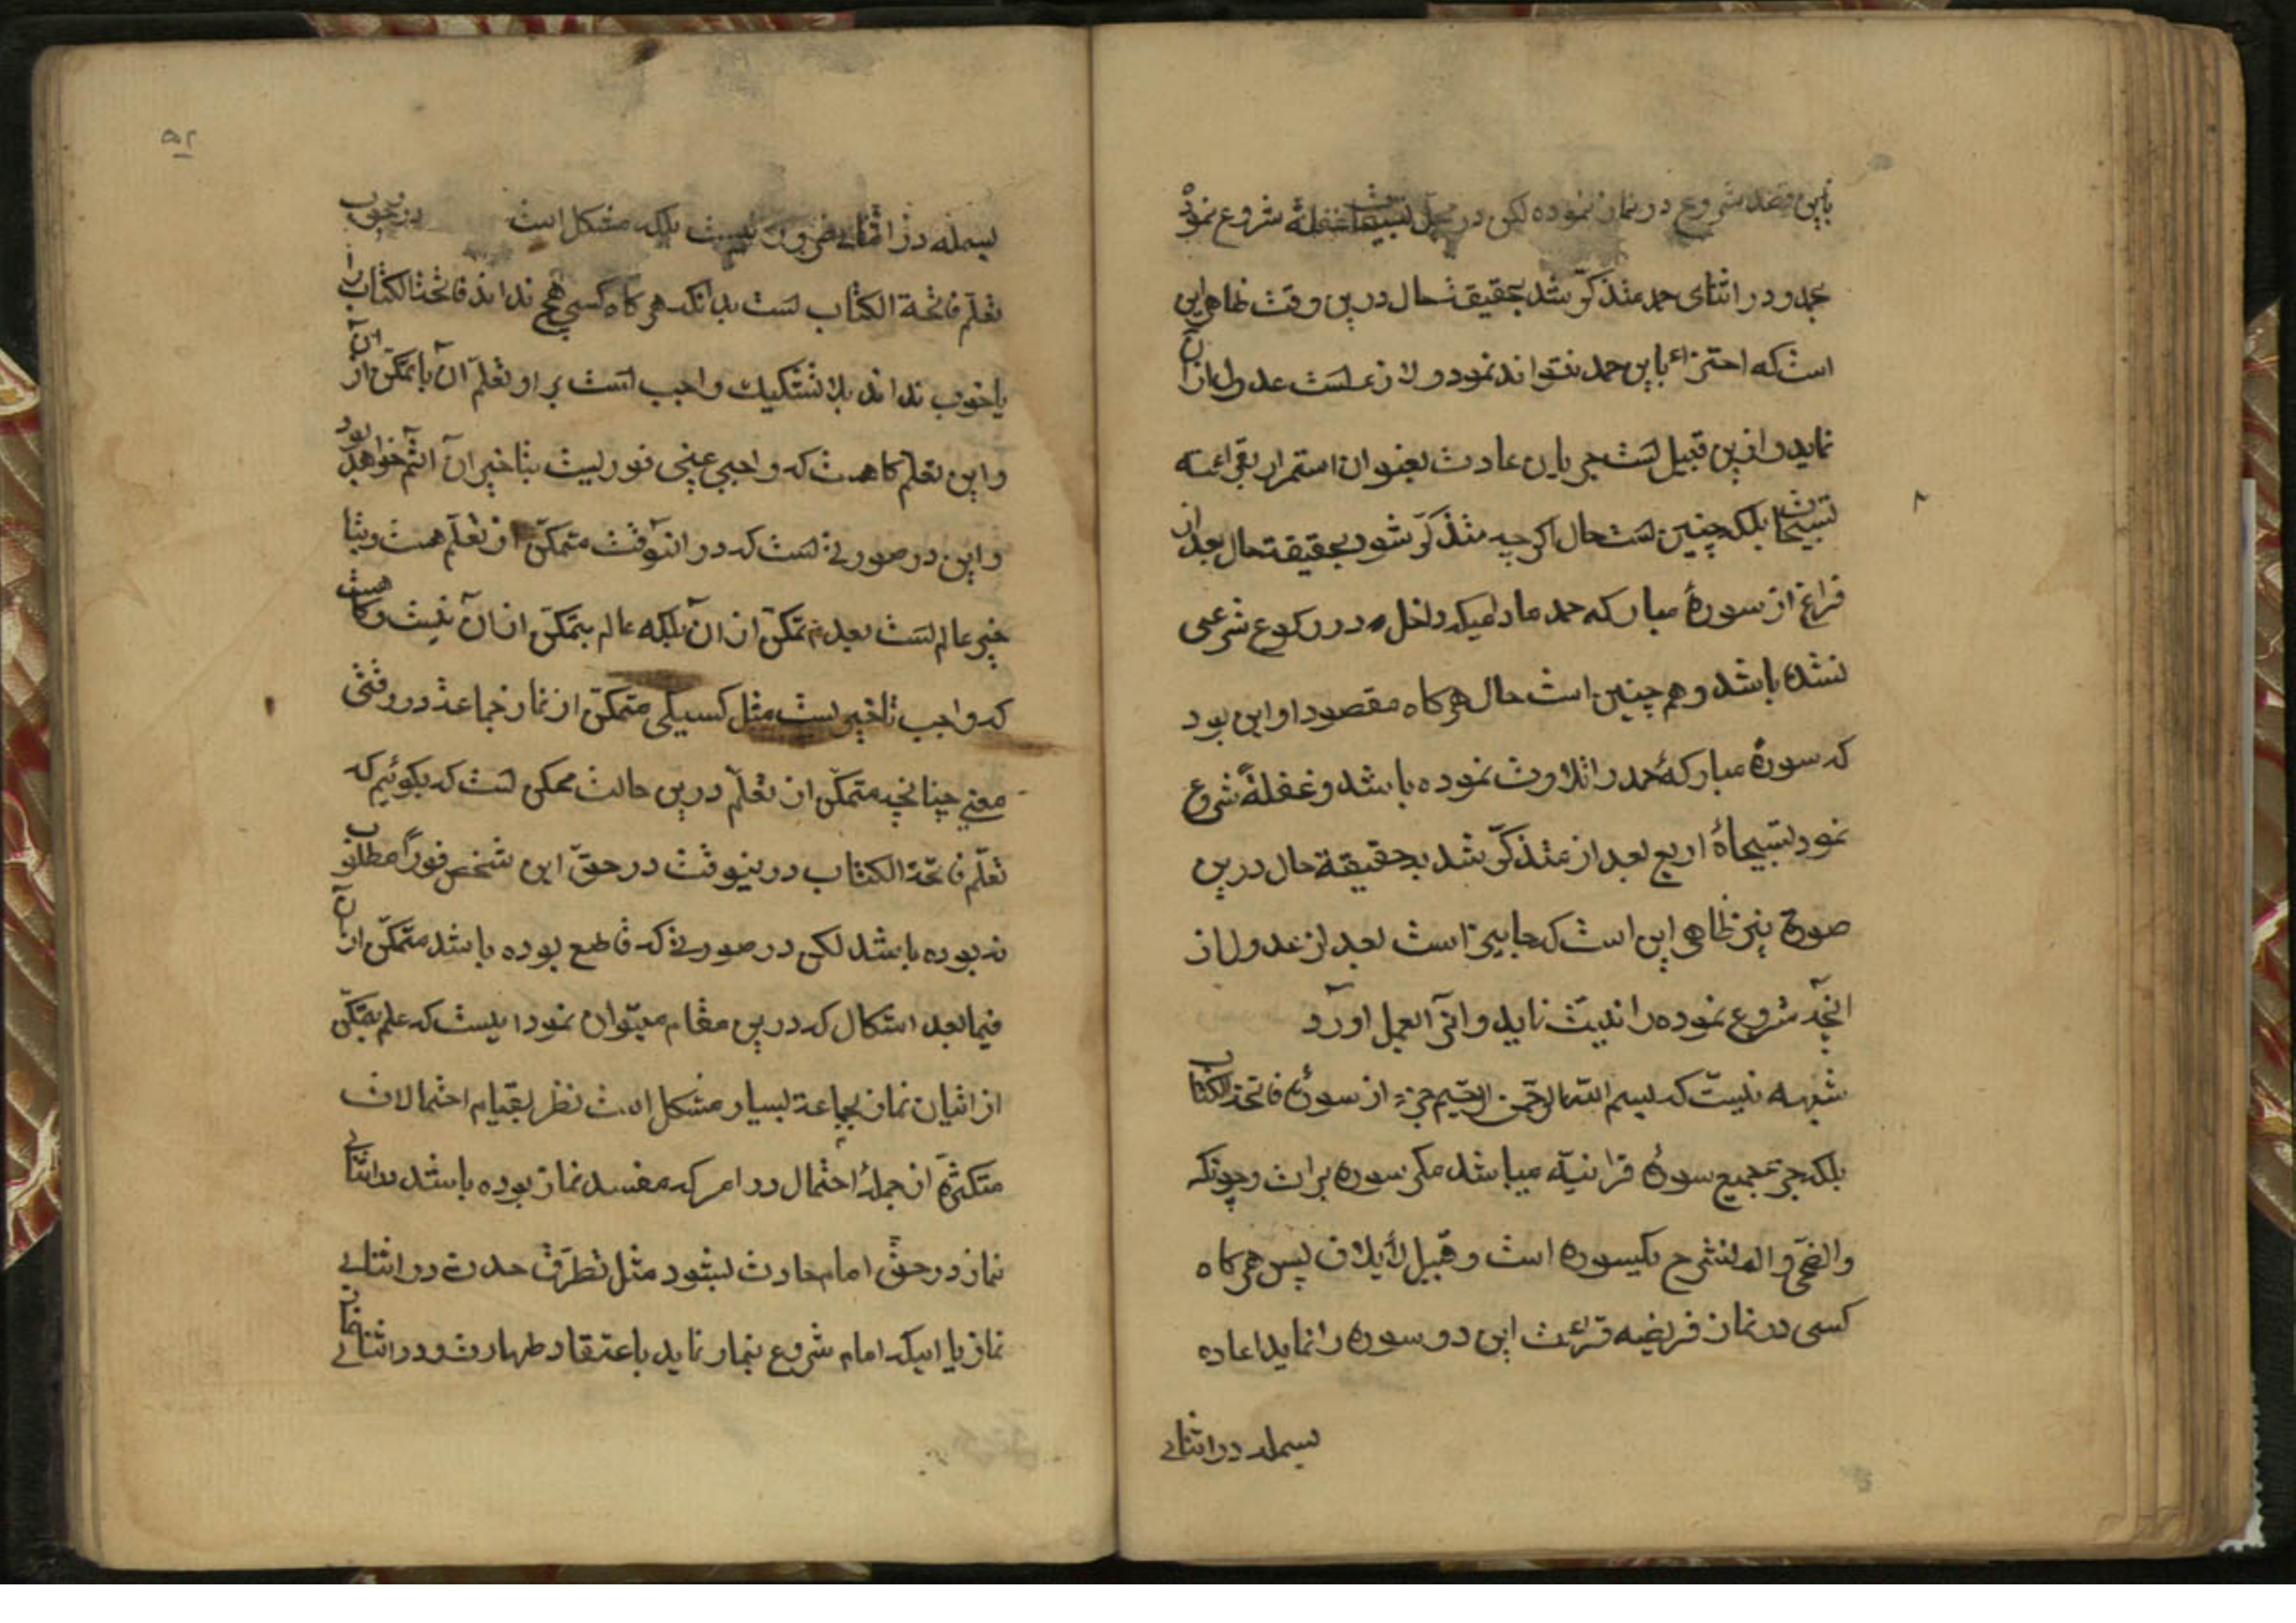 باین قصد شروع در نماز نموده لکن در محل تسبیحات غفلةً شروع نموده
بحمد و در اثنای حمد متذکّر شد بحقیقت حال درین وقت ظاهر این
است که اجتزاء باین حمد نتواند نمود و لازمست عدول از آن
نماید و ازین قبیل است جریان عادت بعنوان استمرار بقرائت
تسبیحات بلکه چنین است حال اگر چه متذکّر شود بحقیقة حال بعد از
فراغ از سورهٔ مبارکه حمد مادامیکه داخل در رکوع شرعی
نشده باشد و هم چنین است حال هر گاه مقصود او این بود
که سورهٔ مبارکهٔ حمد را تلاوت نموده باشد و غفلةً شروع
نمود بتسبیحاة اربع بعد از متذکّر شد بحقیقة حال درین
صورة نیز ظاهر این است که جایز است بعد از عدول از
آنچه شروع نموده را نیّت نماید و آنرا بعمل آورد
شبهه نیست که بسم الله الرحمن الرحیم جزء از سورهٔ فاتحة الکتاب
بلکه جزء جمیع سورهٔ قرانیّه میباشد مگر سوره برات و چونکه
والضحی و الم نشرح یکسوره است و فیل لأیلاف پس هر گاه
کسی در نماز فریضه قرائت این دو سوره را نماید اعاده
بسمله در اثنای
۵۲
بسمله در اثنای ضرور نیست بلکه مشکل است در وجوب
تعلّم فاتحة الکتاب است بدانکه هر گاه کسی هیچ نداند فاتحة الکتاب را
یا خوب نداند بلا تشکیک واجب است بر او تعلّم آن با تمکّن از آن
و این تعلّم گاهست که واجب عینی فوریست بتاخیر آن آثم خواهد بود
و این در صورتی است که در آنوقت متمکّن از تعلّم هست و بتا
خیر عالم است بعدم تمکّن از آن بلکه عالم بتمکّن از آن نیست و گاهست
که واجب تاخیریست مثل کسیکه متمکّن از نماز جماعة در وقتی
معنی چنانچه متمکّن از تعلّم درین حالت ممکن است که بگوئیم که
تعلّم فاتحة الکتاب درینوقت در حقّ این شخص فوراً مطلوب
نه بوده باشد لکن در صورتی که قاطع بوده باشد متمکّن از آن
فیما بعد اشکال که درین مقام میتوان نمود اینست که علم بتمکّن
از اتیان نماز بجماعة بسیار مشکل است نظر بقیام احتمالات
متکثّره از جملهٔ احتمال در امر که مفسد نماز بوده باشد در اثنای
نماز در حقّ امام حادث بشود مثل تطرّق حدث در اثنای
نماز یا اینکه امام شروع بنماز نماید باعتقاد طهارت و در اثنای نماز